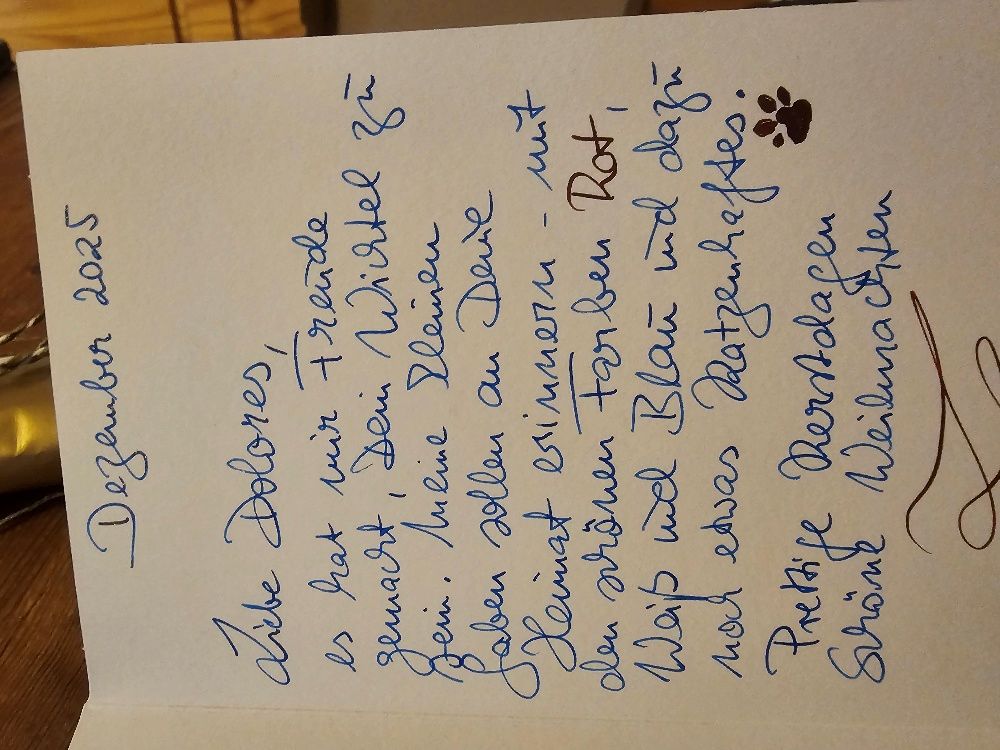 Dezember 2025
Liebe Dolores,
es hat mir Freude
gemacht, Dein Wichtel zu
sein. Meine kleinen
Gaben sollen an Deine
Heimat erinnern - mit
den schönen Farben Rot,
Weiß und Blau und dazu
noch etwas Katzenhaftes.
Prettige Kerstdagen
Schöne Weihnachten